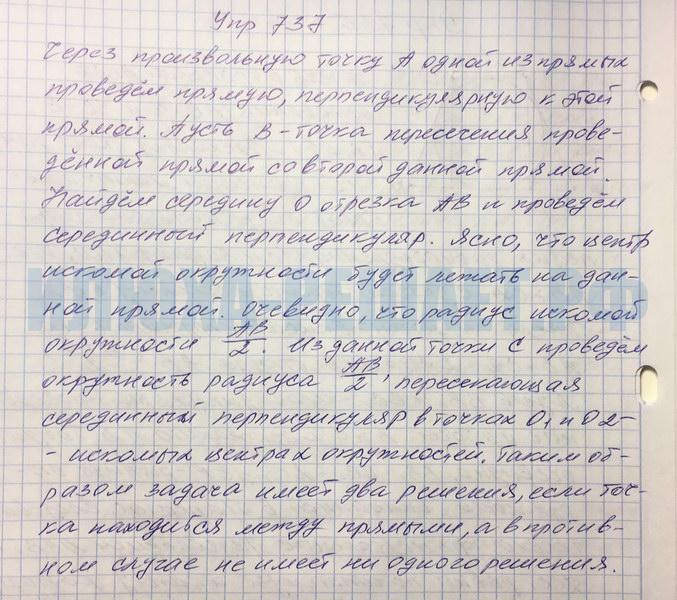 Упр 737
Через произвольную точку А одной из прямых
проведём прямую, перпендикулярную к этой
прямой. Пусть В - точка пересечения прове-
дённой прямой со второй данной прямой.
Найдём середину О отрезка АВ и проведём
серединный перпендикуляр. Ясно, что центр
искомой окружности будет лежать на дан-
ной прямой. Очевидно, что радиус искомой
окружности АВ/2. Из данной точки С проведём
окружность радиуса АВ/2, пересекающая
серединный перпендикуляр в точках О1 и О2-
- искомых центрах окружностей. Таким об-
разом задача имеет два решения, если точ-
ка находится между прямыми, а в против-
ном случае не имеет ни одного решения.